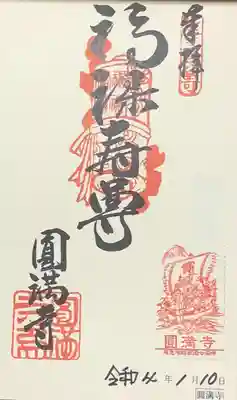 奉拝
福禄寿尊
圓満寺
圓満寺
令和4年1月10日
圓満寺